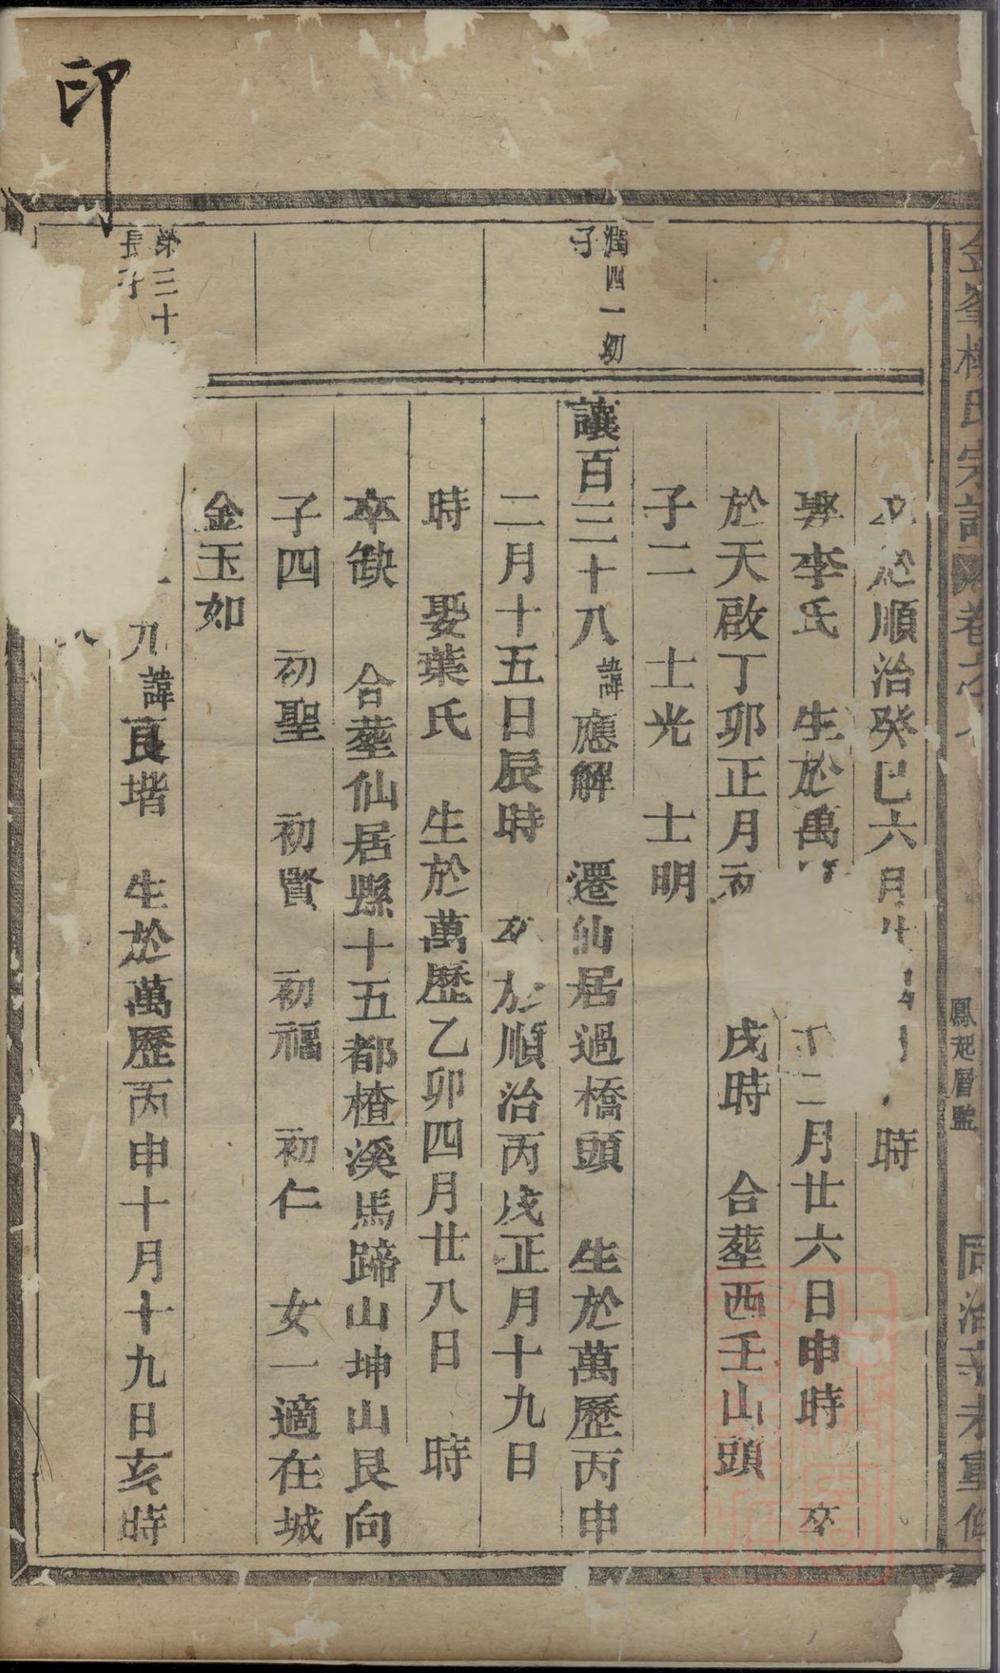 印
氏宗譜 卷
鳳起層監
同治辛未重修
於順治癸巳六月 時
娶李氏 生於萬 二月廿六日申時 卒
於天啟丁卯正月初 戌時 合塟西壬山頭
子二 士光 士明
潤四一幼
子
讓百三十八諱應解 遷仙居過橋頭 生於萬歷丙申
二月十五日辰時 卒於順治丙戌正月十九日
時 娶葉氏 生於萬歷乙卯四月廿八日 時
卒缺 合塟仙居縣十五都楂溪馬蹄山坤山艮向
子四 初聖 初賢 初福 初仁 女一適在城
金玉如
第三十
長子
諱良堦 生於萬歷丙申十月十九日亥時